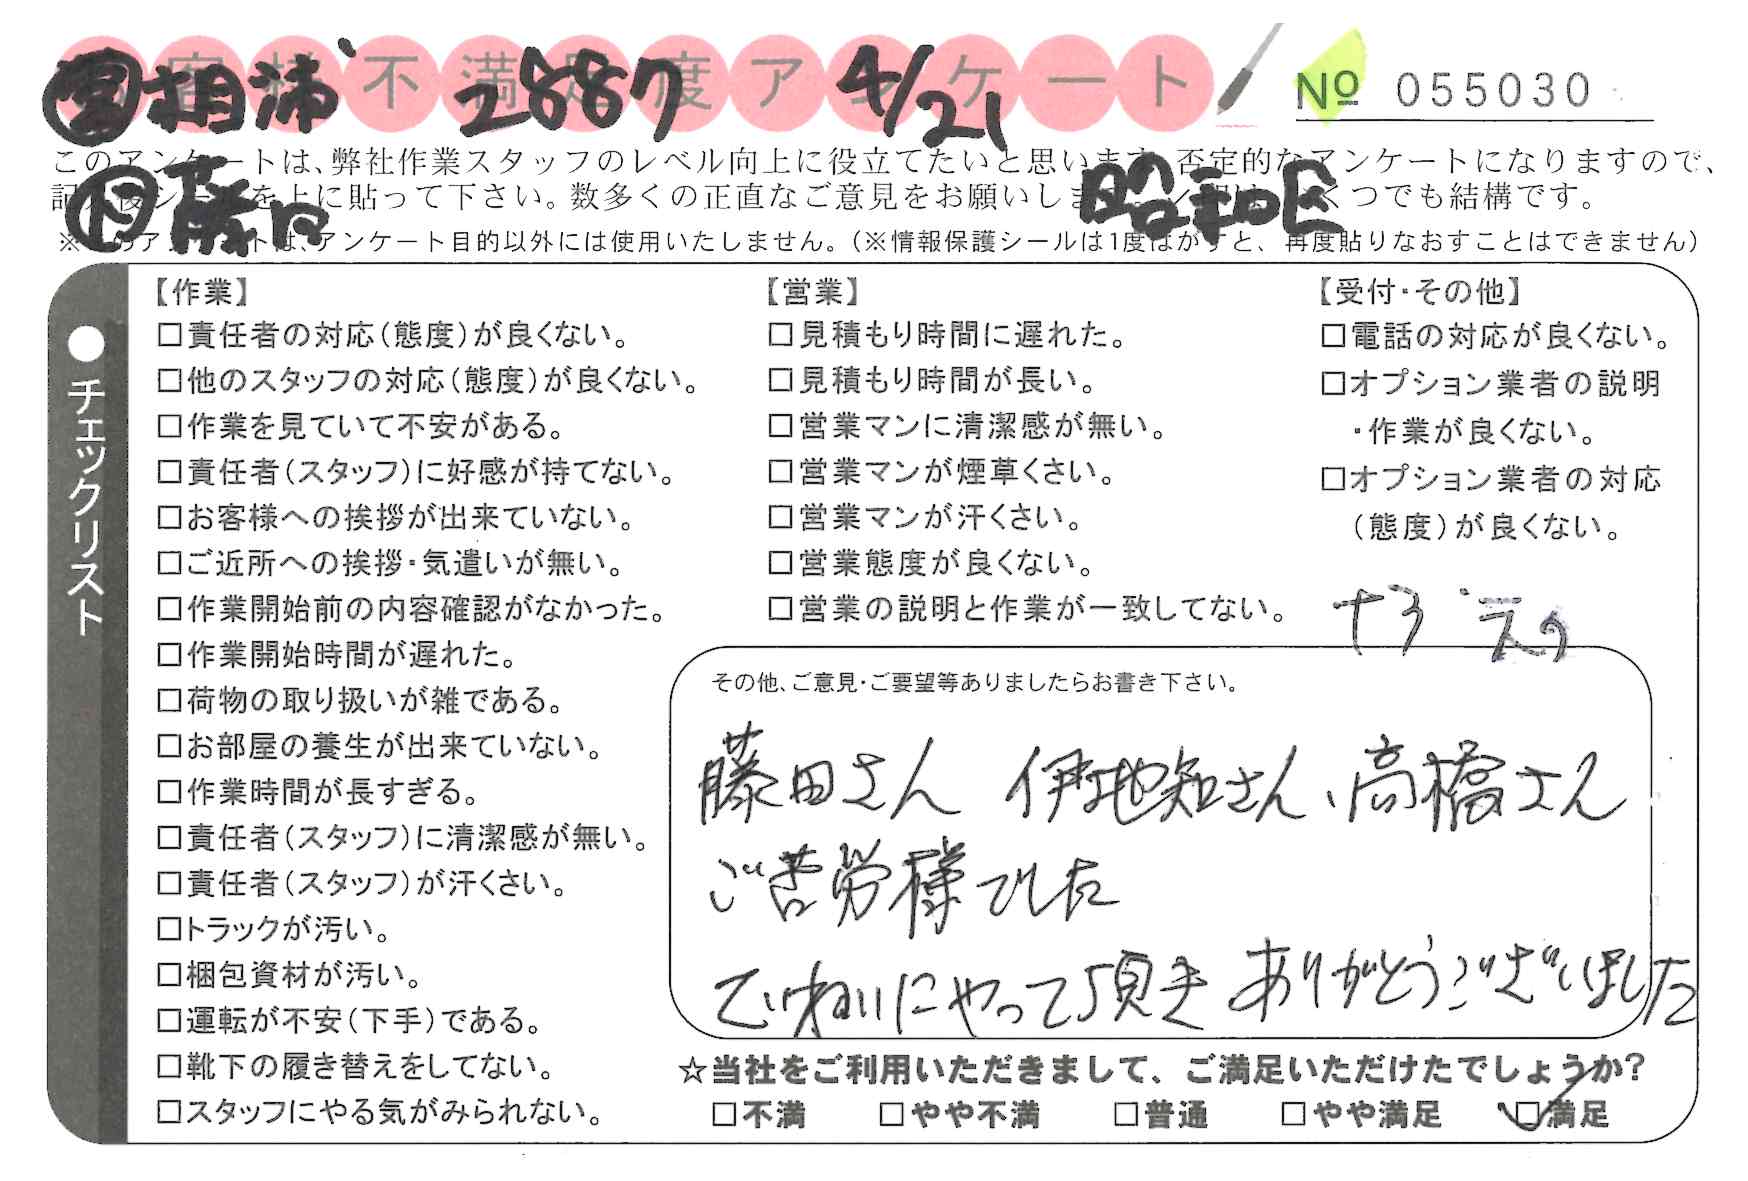 お客様不満足度アンケート
営 相沛 2887 4/21
№ 055030
このアンケートは、弊社作業スタッフのレベル向上に役立てたいと思います。否定的なアンケートになりますので、
記入後シールを上に貼って下さい。数多くの正直なご意見をお願いしま つでも結構です。
作 藤田 昭和E
※このアンケートは、アンケート目的以外には使用いたしません。(※情報保護シールは1度はがすと、再度貼りなおすことはできません)
●チェックリスト
【作業】
□責任者の対応(態度)が良くない。
□他のスタッフの対応(態度)が良くない。
□作業を見ていて不安がある。
□責任者(スタッフ)に好感が持てない。
□お客様への挨拶が出来ていない。
□ご近所への挨拶・気遣いが無い。
□作業開始前の内容確認がなかった。
□作業開始時間が遅れた。
□荷物の取り扱いが雑である。
□お部屋の養生が出来ていない。
□作業時間が長すぎる。
□責任者(スタッフ)に清潔感が無い。
□責任者(スタッフ)が汗くさい。
□トラックが汚い。
□梱包資材が汚い。
□運転が不安(下手)である。
□靴下の履き替えをしてない。
□スタッフにやる気がみられない。
【営業】
□見積もり時間に遅れた。
□見積もり時間が長い。
□営業マンに清潔感が無い。
□営業マンが煙草くさい。
□営業マンが汗くさい。
□営業態度が良くない。
□営業の説明と作業が一致してない。
【受付・その他】
□電話の対応が良くない。
□オプション業者の説明
・作業が良くない。
□オプション業者の対応
(態度)が良くない。
その他、ご意見・ご要望等ありましたらお書き下さい。
藤田さん 伊地知さん、高橋さん
ご苦労様でした
ていねいにやって頂き ありがとうございました
☆当社をご利用いただきまして、ご満足いただけたでしょうか?
□不満 □やや不満 □普通 □やや満足 □満足